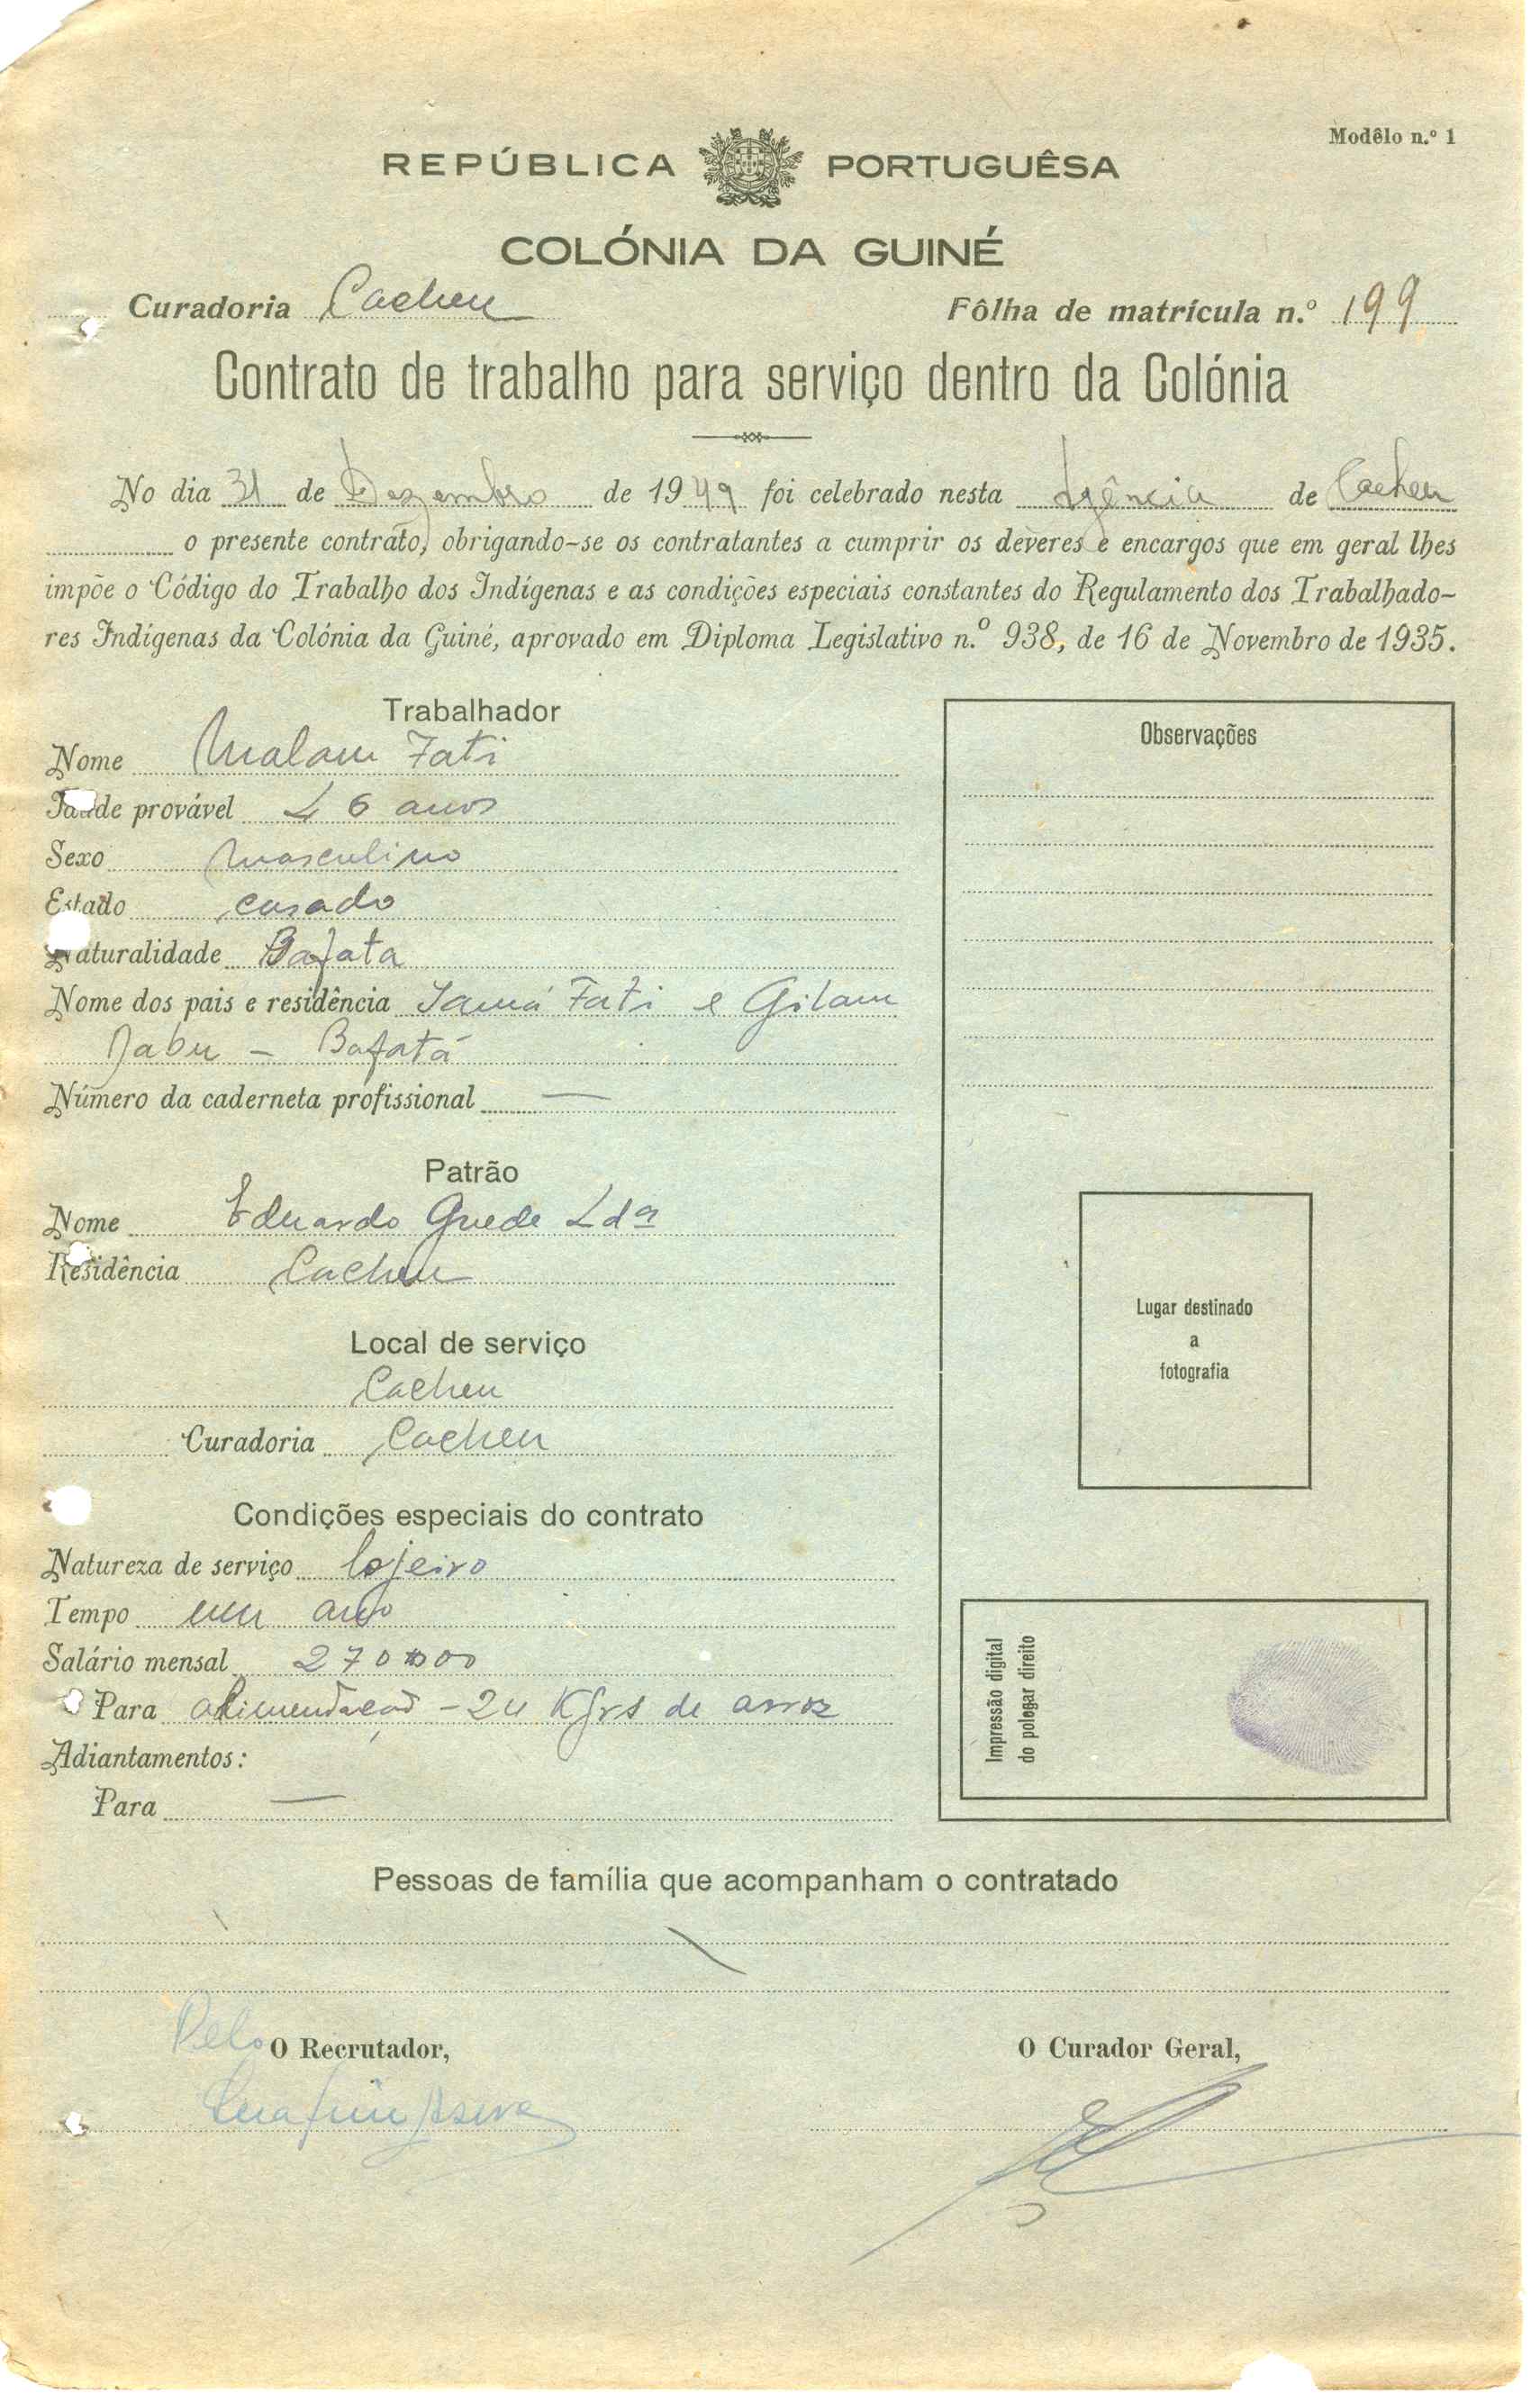 Modêlo n.º 1
REPÚBLICA PORTUGUÊSA
COLÓNIA DA GUINÉ
Curadoria Cacheu Fôlha de matrícula n.º 199
Contrato de trabalho para serviço dentro da Colónia
No dia 31 de Dezembro de 1949 foi celebrado nesta Agência de Cacheu
o presente contrato, obrigando-se os contratantes a cumprir os deveres e encargos que em geral lhes
impõe o Código do Trabalho dos Indígenas e as condições especiais constantes do Regulamento dos Trabalhado-
res Indígenas da Colónia da Guiné, aprovado em Diploma Legislativo n.º 938, de 16 de Novembro de 1935.
Trabalhador
Nome Malam Fati
Idade provável 46 anos
Sexo masculino
Estado casado
Naturalidade Bafata
Nome dos pais e residência Fati e Gilam
Dabu - Bafatá
Número da caderneta profissional —
Patrão
Nome Eduardo Guede Ldª
Residência Cacheu
Local de serviço
Cacheu
Curadoria Cacheu
Condições especiais do contrato
Natureza de serviço lojeiro
Tempo um ano
Salário mensal 270$00
Para alimentação - 24 Kgrs de arroz
Adiantamentos:
Para —
Observações
Lugar destinado
a
fotografia
Impressão digital
do polegar direito
Pessoas de família que acompanham o contratado
Pelo O Recrutador,
O Curador Geral,